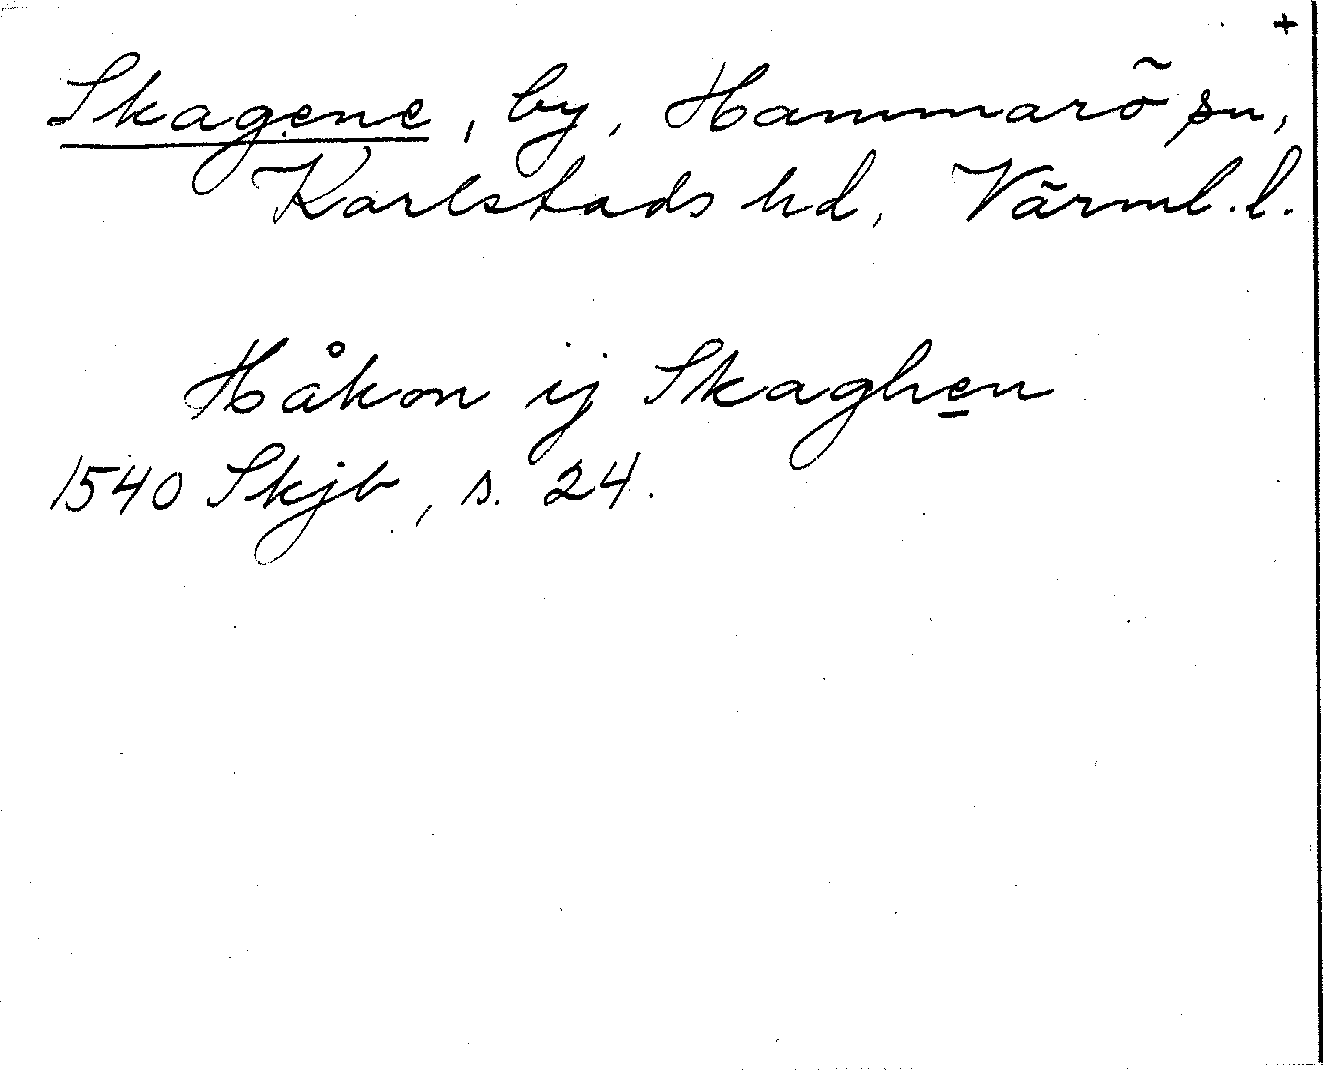 +
Skagene, by, Hammarö sn,
Karlstads hd, Värml. l.
Håkon ij Skaghen
1540 Skjb, s. 24.